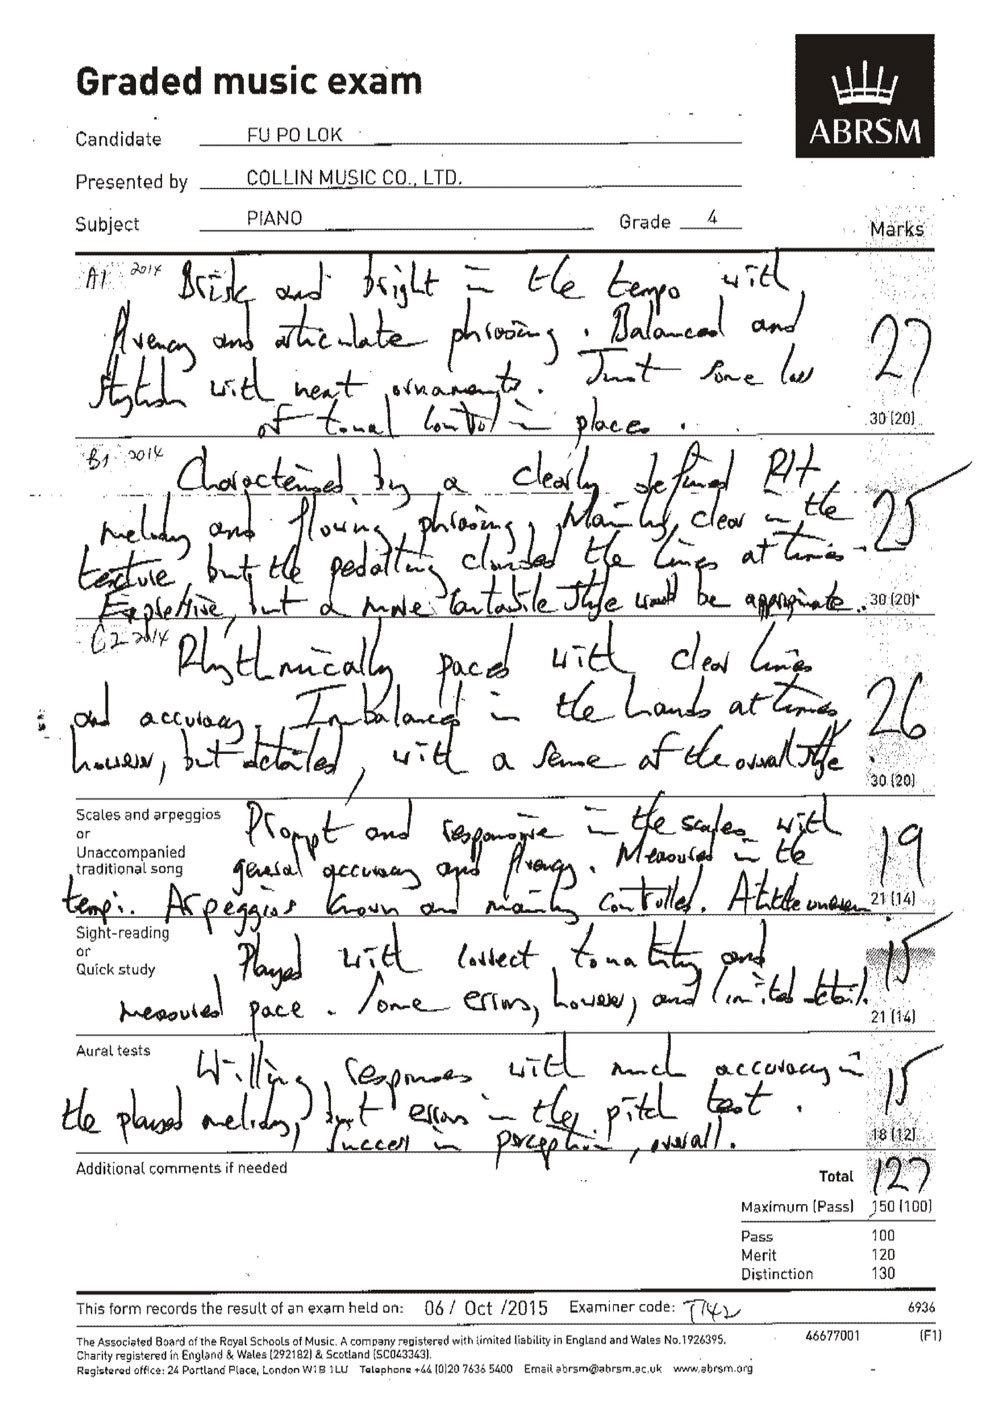 Graded music exam
ABRSM
Candidate FU PO LOK
Presented by COLLIN MUSIC CO., LTD.
Subject PIANO Grade 4
Marks
A1 2014 Brisk and bright in the tempo with
fluency and articulate phrasing. Balanced and
stylish with neat ornaments. Just some loss
of tonal control in places.
27
30 (20)
B1 2014 Characterised by a clearly defined RH
melody and flowing phrasing, Mainly clear in the
texture, but the pedalling clouded the lines at times.
Expressive, but a more cantabile style would be appropriate.
25
30 (20)
C2 2014 Rhythmically paced with clear lines
and accuracy. Imbalanced in the hands at times,
however, but detailed, with a sense of the overall style.
26
30 (20)
Scales and arpeggios
or
Unaccompanied
traditional song
Prompt and responsive in the scales with
general accuracy and fluency. Measured in the
tempi. Arpeggios known and mainly controlled. A little uneven
19
21 (14)
Sight-reading
or
Quick study
Played with correct tonality and
measured pace. Some errors, however, and limited detail.
15
21 (14)
Aural tests
Willing responses with much accuracy in
the played melody, but errors in the pitch test.
Success in perception, overall.
15
18 (12)
Additional comments if needed
Total 127
Maximum (Pass) 150 (100)
Pass 100
Merit 120
Distinction 130
This form records the result of an exam held on: 06 / Oct /2015 Examiner code: T142 6936
The Associated Board of the Royal Schools of Music. A company registered with limited liability in England and Wales No.1926395. 46677001 (F1)
Charity registered in England & Wales (292182) & Scotland (SC043343).
Registered office: 24 Portland Place, London W1B 1LU Telephone +44 (0)20 7636 5400 Email abrsm@abrsm.ac.uk www.abrsm.org